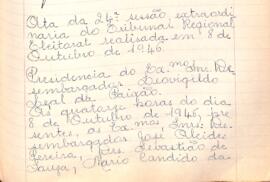 Ata da 24ª sessão extraordi
naria do Tribunal Regional
Eleitoral realisada em 8 de
Outubro de 1946.
Presidencia do Exmo. Snr. De
sembargador Deovigildo
Leal da Paixão.
Ás quatorze horas do dia
8 de Outubro de 1946, pre
sentes, os Exmos. Snrs. De
sembargadores José Alcides
Pereira, Drs. Sebastião de
Souza, Mario Candido da